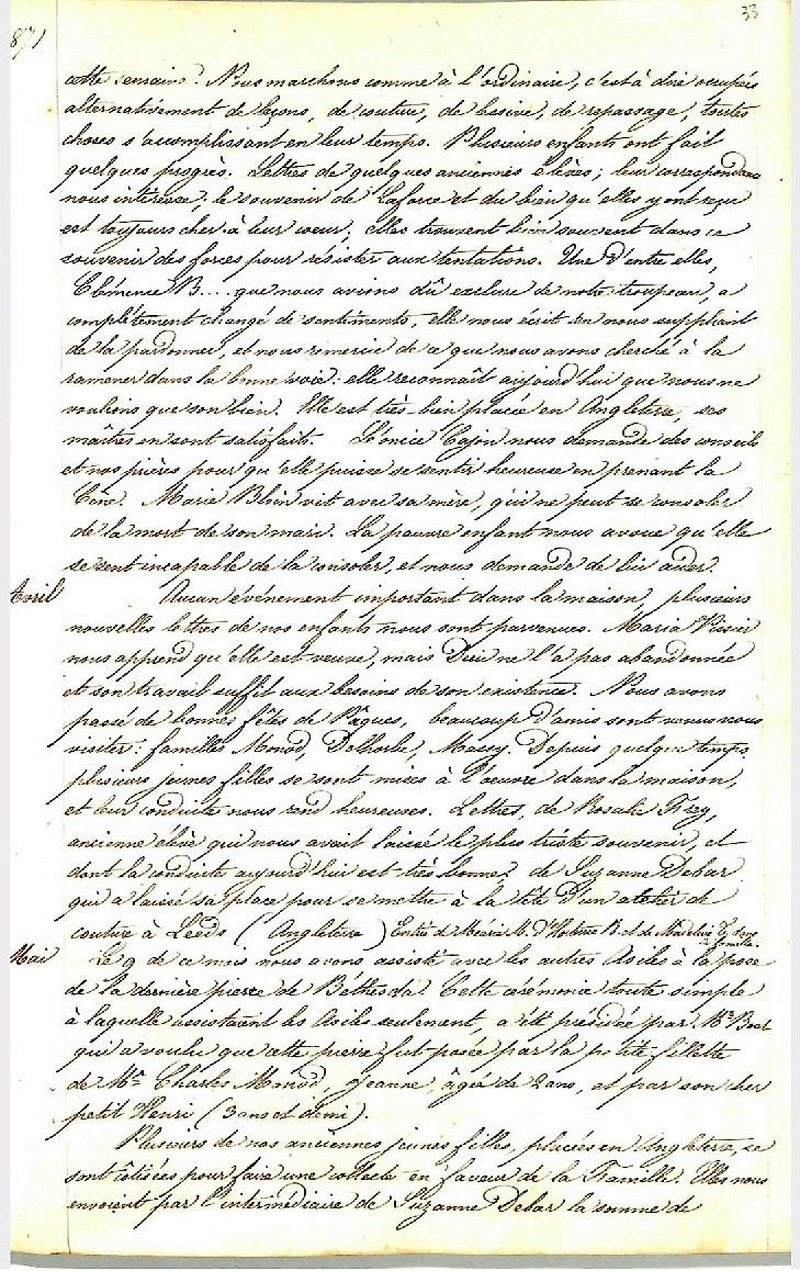 33
871
cette semaine. Nous marchons comme à l'ordinaire, c'est à dire occupées
alternativement de leçons, de couture, de lessive, de repassage, toutes
choses s'accomplissant en leur temps. Plusieurs enfants ont fait
quelques progrès. Lettres de quelques anciennes élèves; leur correspondance
nous intéresse; le souvenir de Laforce et du bien qu'elles y ont reçu
est toujours cher à leur cœur, elles trouvent bien souvent dans ce
souvenir des forces pour résister aux tentations. Une d'entre elles,
Clémence B.... que nous avions dû exclure de notre troupeau, a
complètement changé de sentiments, elle nous écrit en nous suppliant
de la pardonner, et nous remercie de ce que nous avons cherché à la
ramener dans la bonne voie: elle reconnaît aujourd'hui que nous ne
voulions que son bien. Elle est très-bien placée en Angleterre, ses
maîtres en sont satisfaits. Léonice Cajon nous demande des conseils
et nos prières pour qu'elle puisse se sentir heureuse en prenant la
Cène. Marie Blin vit avec sa mère, qui ne peut se consoler
de la mort de son mari. La pauvre enfant nous avoue qu'elle
se sent incapable de la consoler, et nous demande de lui aider.
Avril Aucun événement important dans la maison, plusieurs
nouvelles lettres de nos enfants nous sont parvenues. Maria
nous apprend qu'elle est veuve, mais Dieu ne l'a pas abandonnée
et son travail suffit aux besoins de son existence. Nous avons
passé de bonnes fêtes de Pâques, beaucoup d'amis sont venus nous
visiter: familles Monod, Delhorbe, Massy. Depuis quelque temps,
plusieurs jeunes filles se sont mises à l'œuvre dans la maison,
et leur conduite nous rend heureuses. Lettres, de Rosalie Frey,
ancienne élève qui nous avait laissé le plus triste souvenir, et
dont la conduite aujourd'hui est très-bonne; de Suzanne Debar
qui a laissé sa place pour se mettre à la tête d'un atelier de
couture à Leeds (Angleterre) Entrée de Méária M. d'Hortense B. et de Madeleine E. dans
la famille.
Mai Le 9 de ce mois nous avons assisté avec les autres Asiles à la pose
de la dernière pierre de Béthesda. Cette cérémonie toute simple
à laquelle assistaient les Asiles seulement, a été présidée par Mr Bost
qui a voulu que cette pierre fut posée par la petite fillette
de Mr Charles Monod, Jeanne, âgée de 2 ans, et par son cher
petit Henri (3 ans et demi).
Plusieurs de nos anciennes jeunes filles, placées en Angleterre, se
sont cotisées pour faire une collecte en faveur de la Famille. Elles nous
envoient par l'intermédiaire de Suzanne Debar la somme de